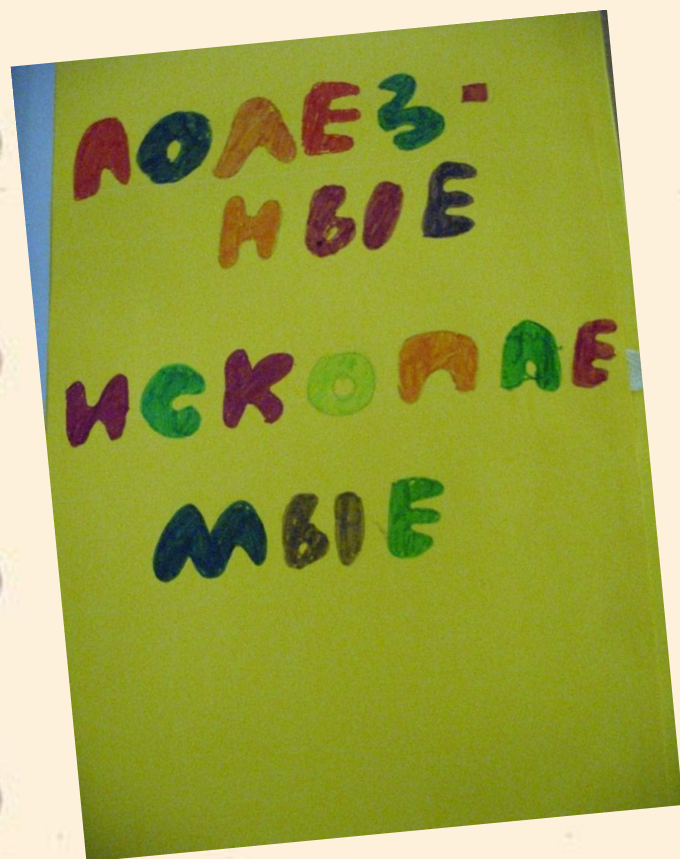 ПОЛЕЗ-
НЫЕ
ИСКОПАЕ
МЫЕ